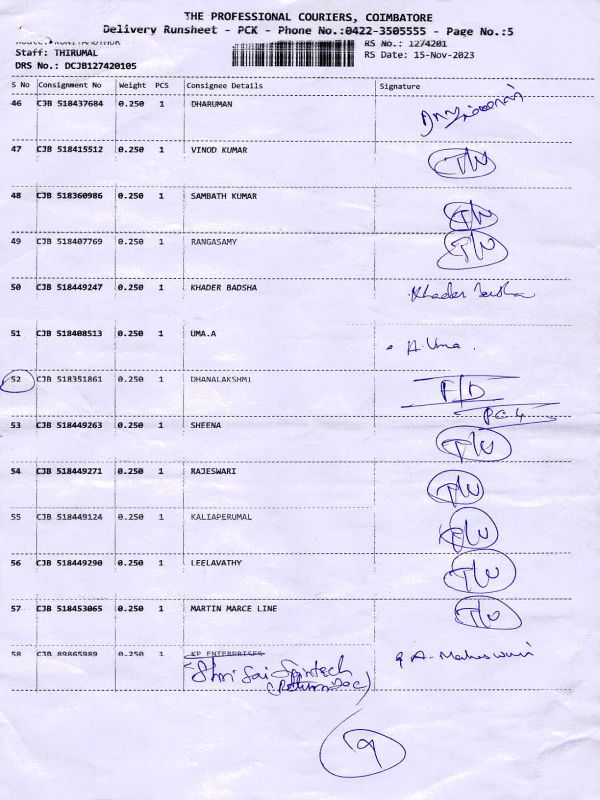 THE PROFESSIONAL COURIERS, COIMBATORE
Delivery Runsheet - PCK - Phone No.:0422-3505555 - Page No.:5
RS No.: 1274201
Staff: THIRUMAL
RS Date: 15-Nov-2023
DRS No.: DCJB127420105
S No Consignment No Weight PCS Consignee Details Signature
46 CJB 518437684 0.250 1 DHARUMAN
47 CJB 518415512 0.250 1 VINOD KUMAR T/W
48 CJB 518360986 0.250 1 SAMBATH KUMAR T/W
49 CJB 518407769 0.250 1 RANGASAMY T/W
50 CJB 518449247 0.250 1 KHADER BADSHA Khader
51 CJB 518408513 0.250 1 UMA.A A. Uma.
52 CJB 518351861 0.250 1 DHANALAKSHMI F/D
P.C.4
53 CJB 518449263 0.250 1 SHEENA T/W
54 CJB 518449271 0.250 1 RAJESWARI T/W
55 CJB 518449124 0.250 1 KALIAPERUMAL T/W
56 CJB 518449290 0.250 1 LEELAVATHY T/W
57 CJB 518453065 0.250 1 MARTIN MARCE LINE T/W
58 CJB 89865989 0.250 1 KP ENTERPRISES A. Maheswari
Shri Sai Spintech
(Return Doc)
9